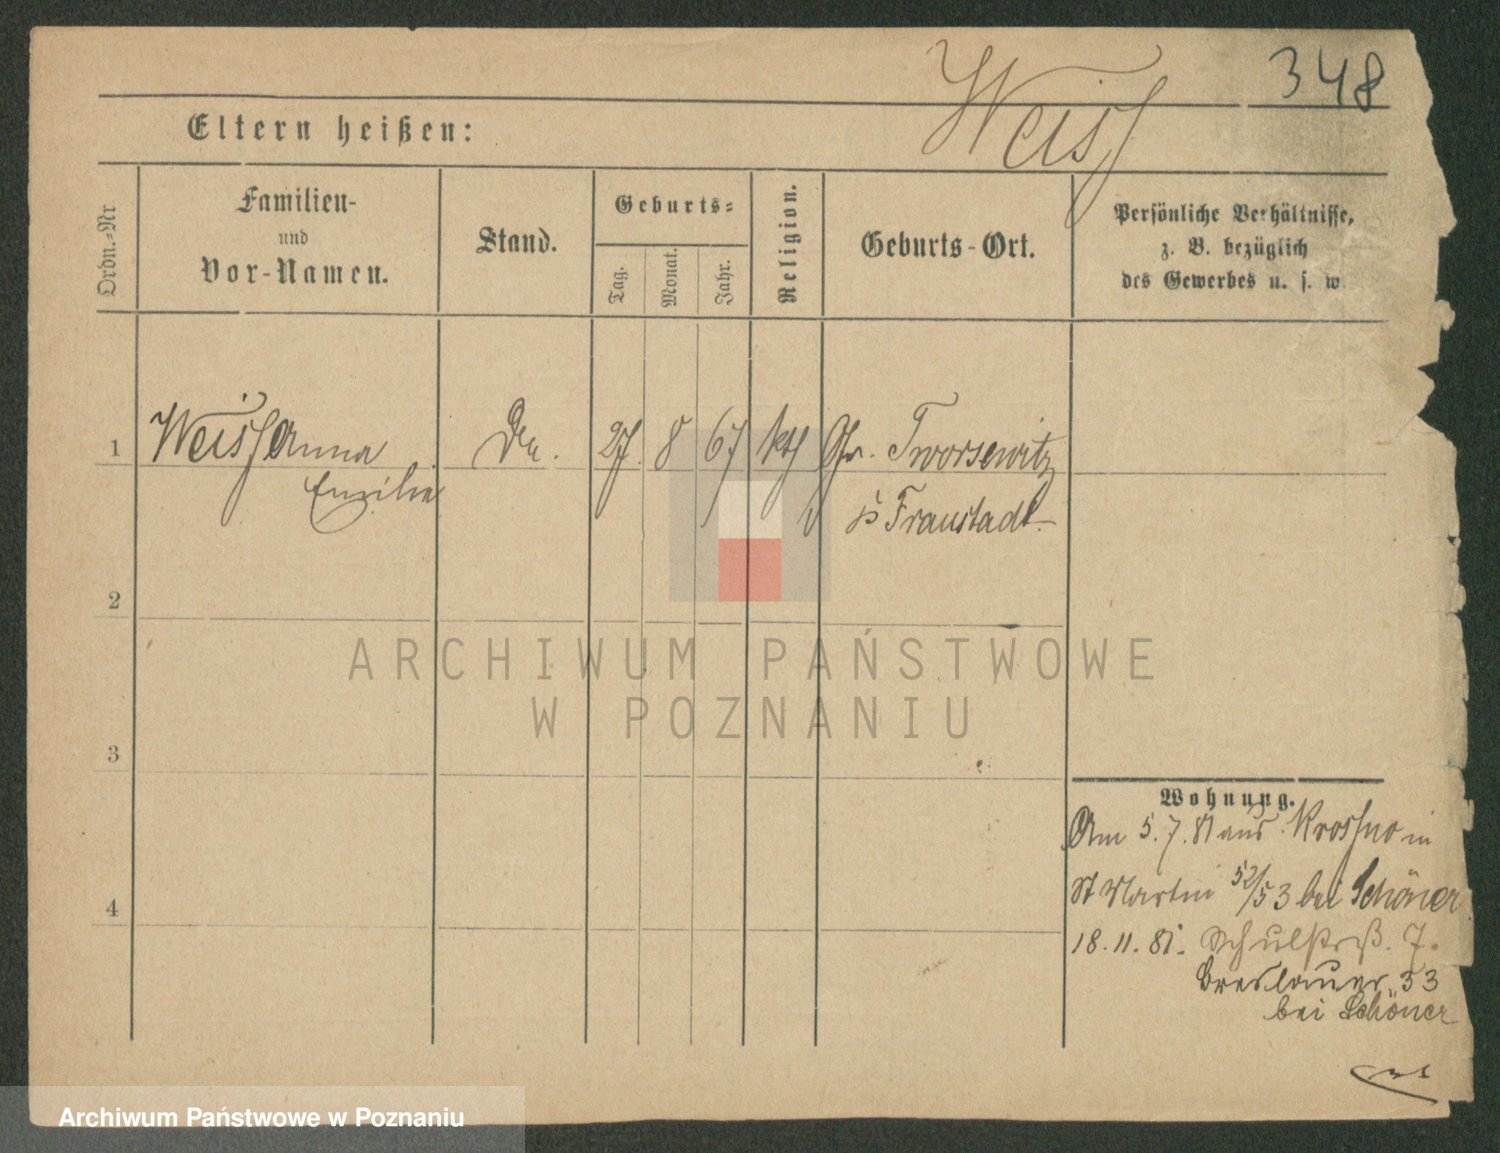 348
Weiss
Eltern heißen:
Ordn.-Nr
Familien-
und
Vor-Namen.
Stand.
Geburts-
Tag.
Monat.
Jahr.
Religion.
Geburts-Ort.
Persönliche Verhältnisse,
z. B. bezüglich
des Gewerbes u. s. w.
1 Weiss Anna 27. 8 67 kth Gr. Tworsewitz
Fraustadt
2
3
4
Wohnung.
Am 5. 7. 81 aus Krossno in
St Martin 52/53 bei Schöner
18. 11. 81. Schulstrß. 7.
Breslauer 33
bei Schöner
ARCHIWUM PAŃSTWOWE
W POZNANIU
Archiwum Państwowe w Poznaniu